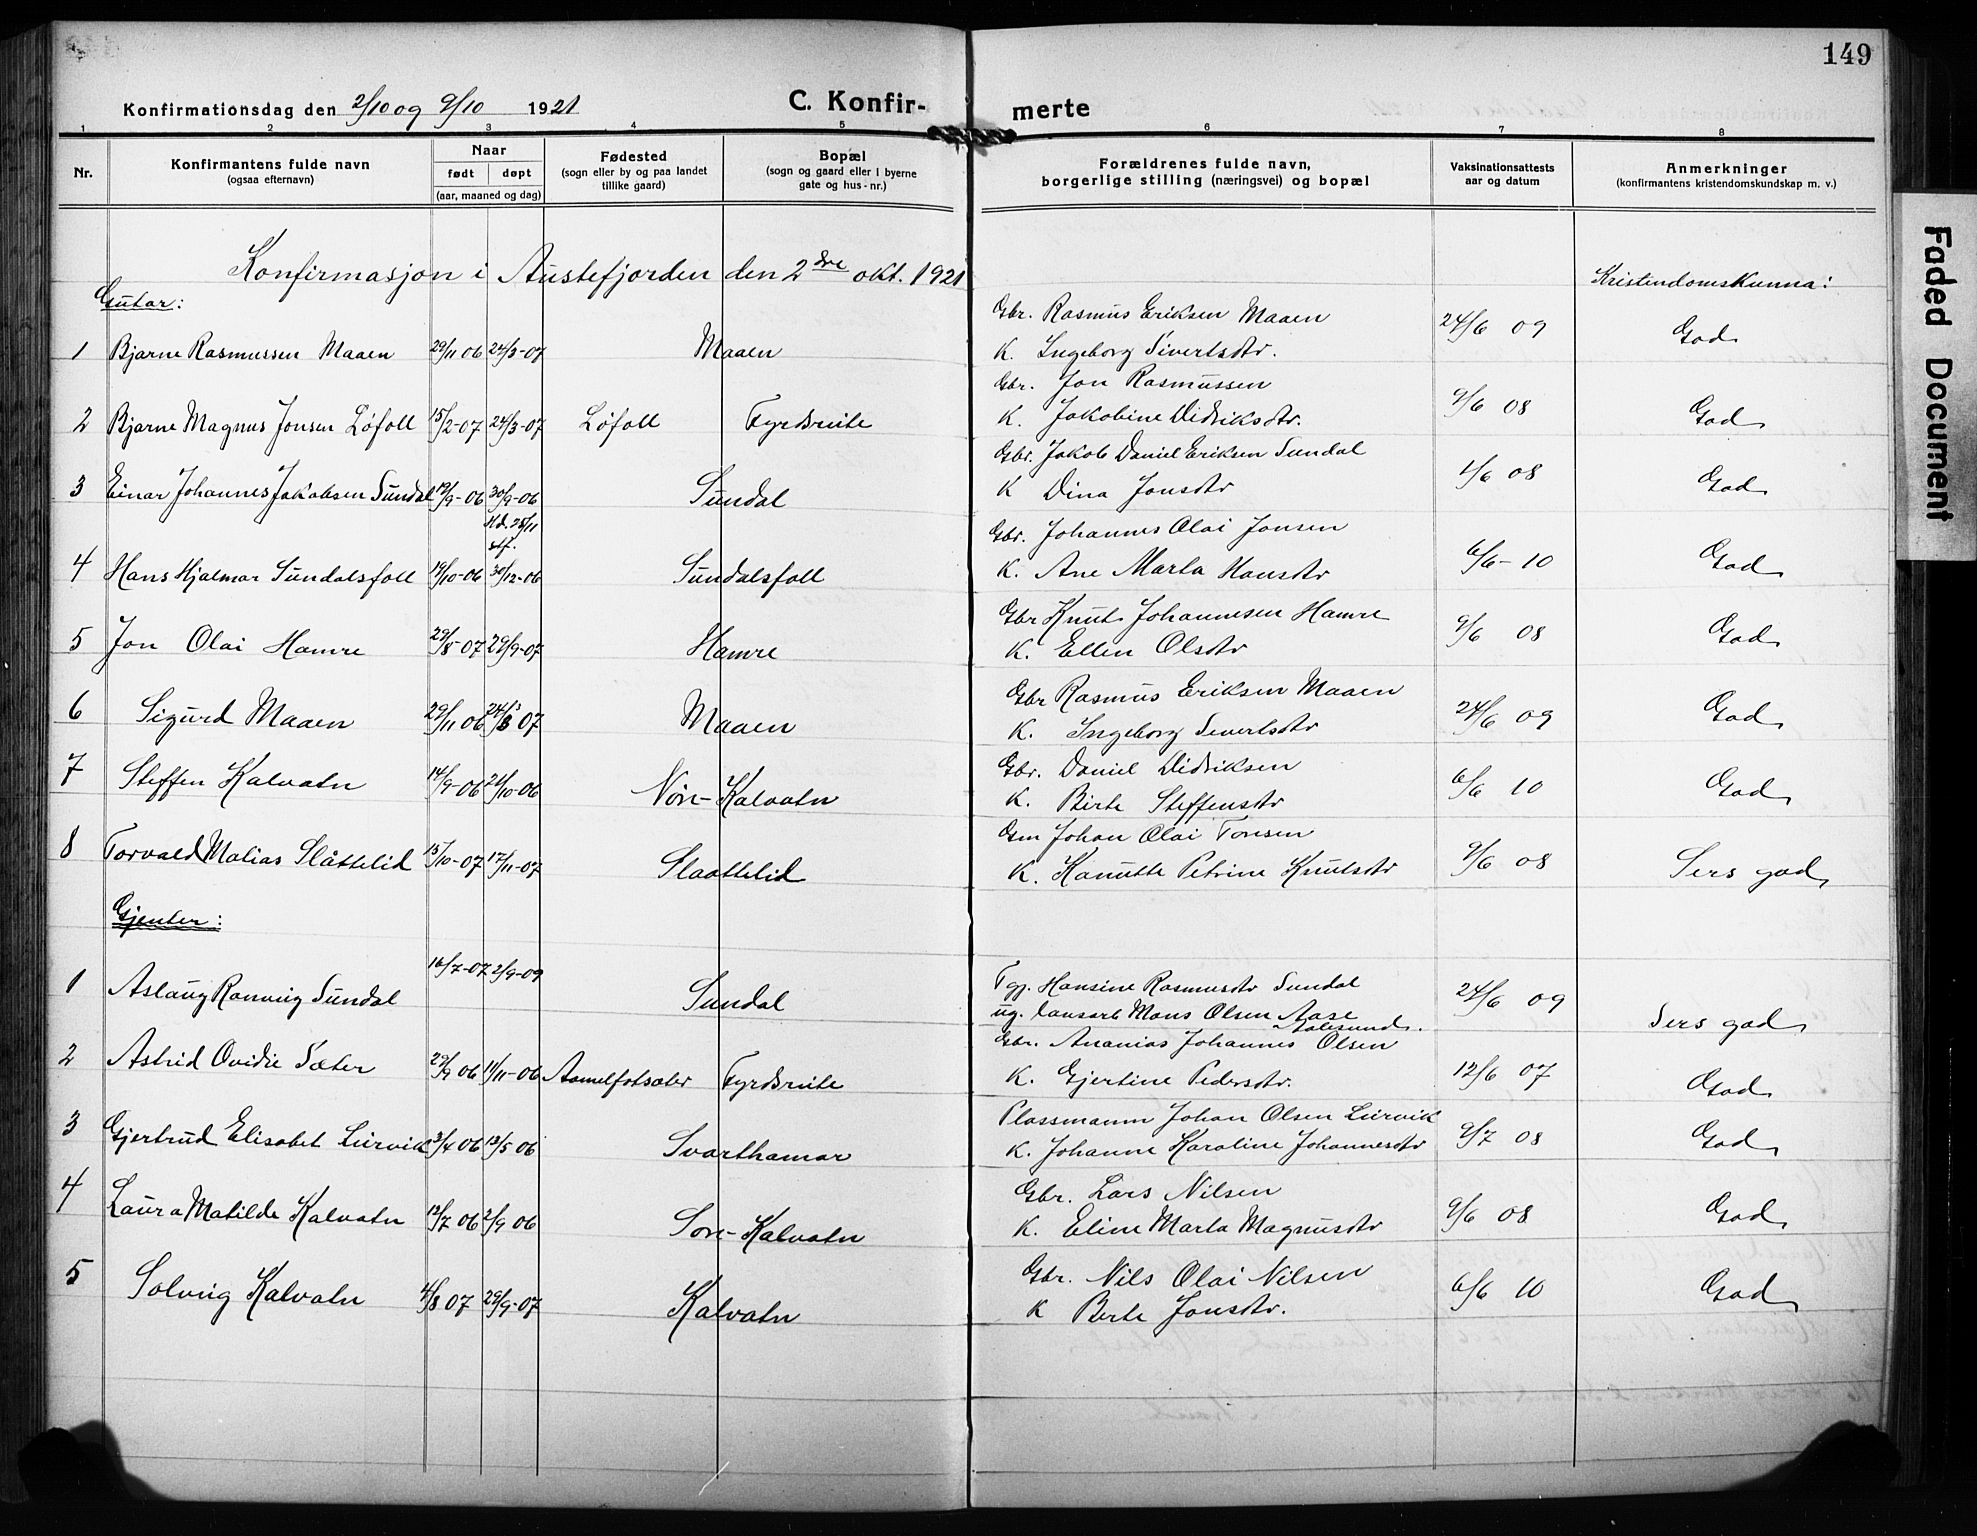 149
Konfirmationsdag den 2/10 og 9/10 1921
C. Konfir-
merte
1 2 3 4 5 6 7 8
Nr.
Konfirmantens fulde navn
(ogsaa efternavn)
Naar
født døpt
(aar, maaned og dag)
Fødested
(sogn eller by og paa landet
tillike gaard)
Bopæl
(sogn og gaard eller i byerne
gate og hus-nr.)
Forældrenes fulde navn,
borgerlige stilling (næringsvei) og bopæl
Vaksinationsattests
aar og datum
Anmerkninger
(konfirmantens kristendomskundskap m. v.)
Konfirmasjon i Austefjorden den 2dre okt. 1921
Kristendomskunna:
Gutar:
Gbr. Rasmus Eriksen Maaen
1 Bjarne Rasmussen Maaen 29/11 06 24/3-07 Maaen K. Ingeborg Sivertsdtr. 24/6 09 God
Gbr. Jon Rasmussen
2 Bjarne Magnus Jonsen Løfoll 15/2-07 24/3-07 Løfoll Fyrdsreite K. Jakobine Didriksdtr. 9/6 08 God
Gbr. Jakob Daniel Eriksen Sundal
3 Einar Johannes Jakobsen Sundal 19/9-06 30/9-06 Sundal K Dina Jonsdtr 1/6 08 God
H.d. 25/11
stf.
Gbr. Johannes Olai Jonsen
4 Hans Hjalmar Sundalsfoll 19/10-06 30/12-06 Sundalsfoll K. Ane Marta Hansdtr 6/6-10 God
Gbr Knut Johannesen Hamre
5 Jon Olai Hamre 29/8-07 29/9-07 Hamre K. Ellen Olsdtr 9/6 08 God
Gbr Rasmus Eriksen Maaen
6 Sigurd Maaen 29/11 06 24/3 07 Maaen K. Ingeborg Sivertsdtr 24/6 09 God
Gbr. Daniel Didriksen
7 Steffen Kalvatn 14/9-06 21/10-06 Nør-Kalvatn K. Birte Steffensdtr 6/6 10 God
Gm Johan Olai Tonsen
8 Torvald Matias Slåttelid 15/10-07 17/11-07 Slaattelid K. Kanutte Petrine Knutsdtr 9/6 08 Sers god
Gjenter:
Tgj. Hansine Rasmusdtr Sundal
1 Aslaug Ranveig Sundal 16/7-07 2/9-09 Sundal ug. lausarb Mons Olsen Aase 24/6 09 Sers god
Aalesund.
Gbr. Ananias Johannes Olsen
2 Astrid Ovidie Sæter 29/9 06 11/11-06 Aamelfotsæter Fyrdsreite K. Gjertine Pedersdtr. 12/6 07 God
Plassmann Johan Olsen Lurvik
3 Gjertrud Elisabet Lurvik 3/4 06 13/5 06 Svarthamar K. Johanne Karoline Johannesdtr 9/7 08 God
Gbr. Lars Nilsen
4 Laura Matilde Kalvatn 12/7 06 2/9 06 Sør-Kalvatn K. Eline Marta Magnusdtr 9/6 08 God
Gbr. Nils Olai Nilsen
5 Solveig Kalvatn 4/8 07 29/9-07 Kalvatn K Berte Jonsdtr. 6/6 10 God
Faded Document